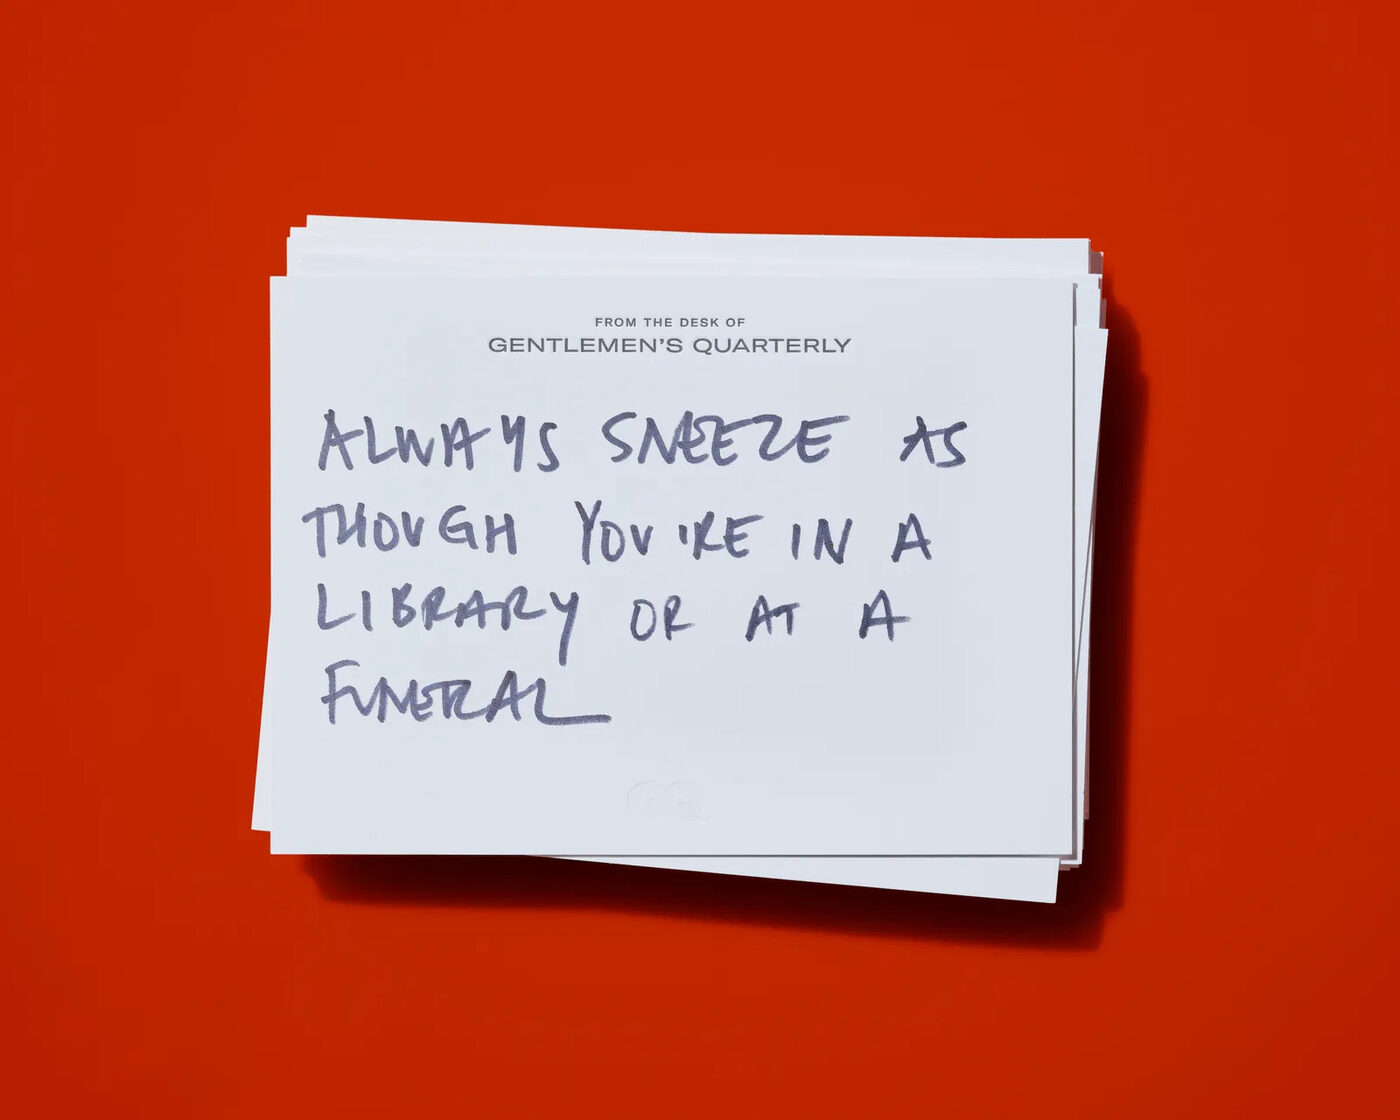 FROM THE DESK OF
GENTLEMEN'S QUARTERLY
ALWAYS SNEEZE AS
THOUGH YOU'RE IN A
LIBRARY OR AT A
FUNERAL
GQ